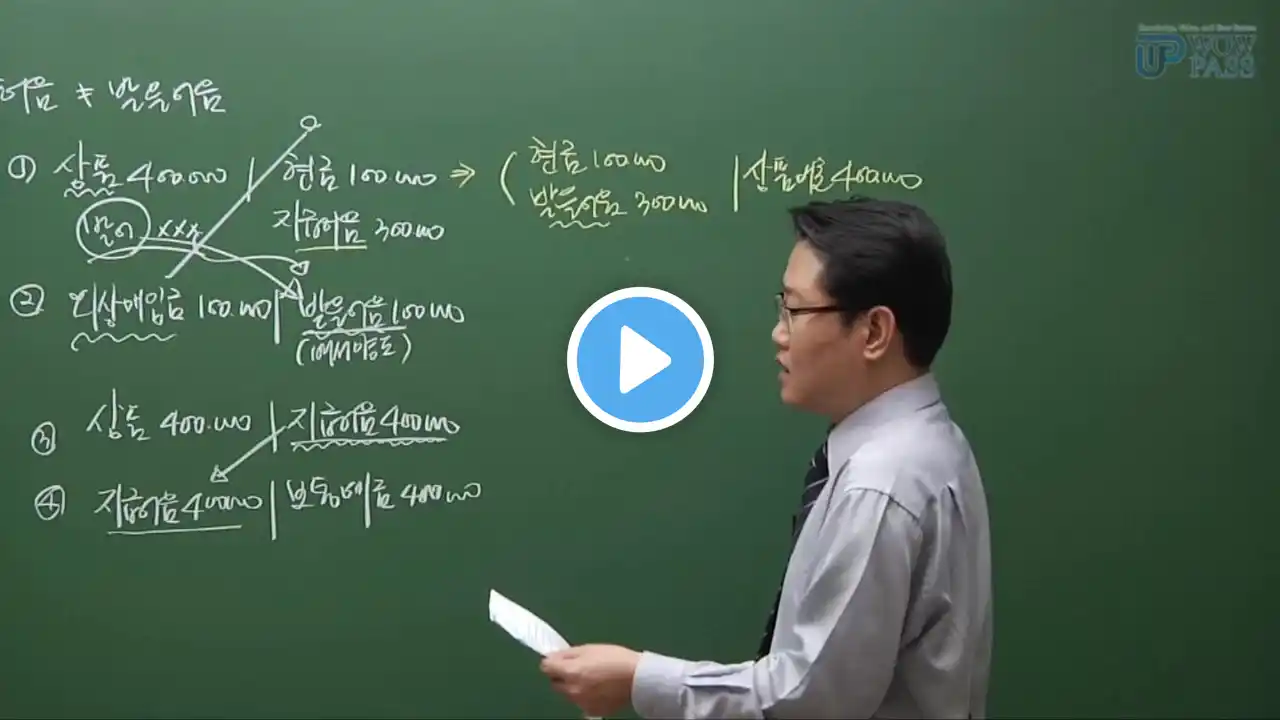 어음 ≠ 받을어음
① 상품 400,000 | 현금 100,000 ⇒ ( 현금 100,000 | 상품매출 400,000
받어 xxx 지급어음 300,000 받을어음 300,000
② 외상매입금 100,000 | 받을어음 100,000
(배서양도)
③ 상품 400,000 | 지급어음 400,000
④ 지급어음 400,000 | 보통예금 400,000
UP WOW PASS